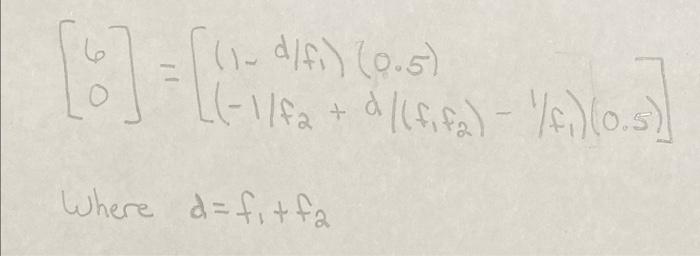 [6 0] = [(1 - d/f₁)(0.5)
(-1/f₂ + d/(f₁f₂) - 1/f₁)(0.5)]
Where d = f₁ + f₂